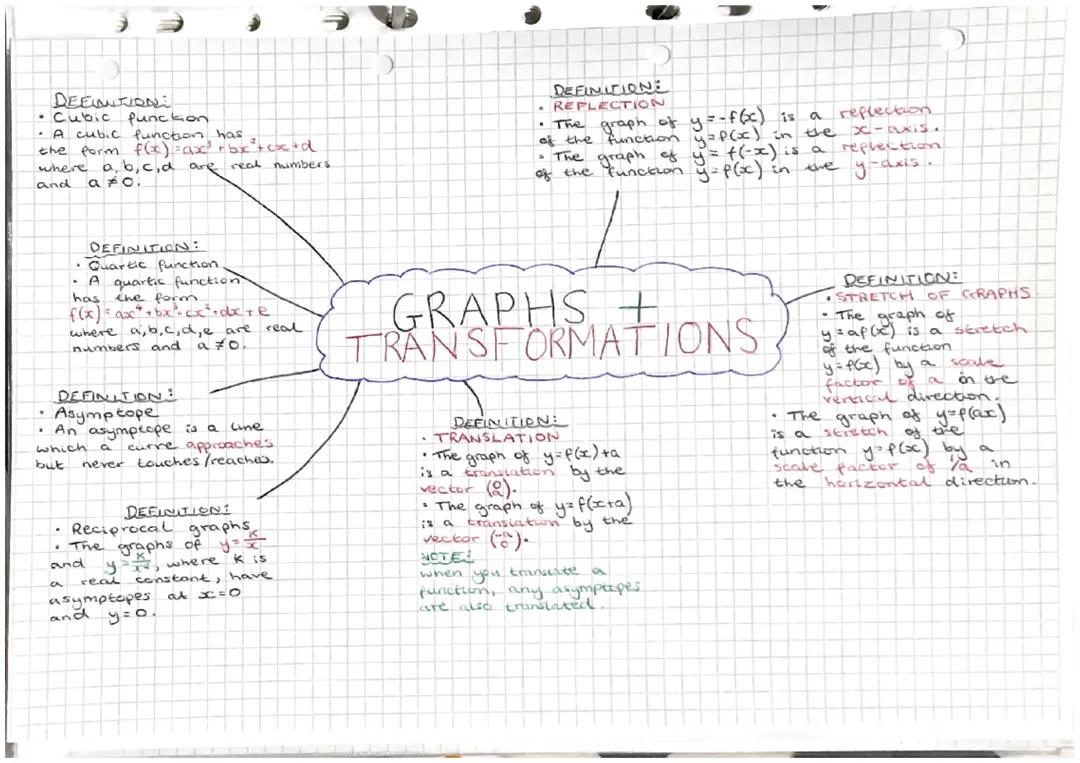 DEFINITION:
• Cubic function
• A cubic function has
the form f(x)=ax³+bx²+cx+d
where a,b,c,d are real numbers
and a≠0.
DEFINITION:
• Quartic function
• A quartic function
has the form
f(x)=ax⁴+bx³+cx²+dx+e
where a,b,c,d,e are real
numbers and a≠0.
DEFINITION:
• Asymptope
• An asymptope is a line
which a curve approaches
but never touches/reaches.
DEFINITION:
• Reciprocal graphs
• The graphs of y=k/x
and y=k/x², where k is
a real constant, have
asymptopes at x=0
and y=0.
GRAPHS +
TRANSFORMATIONS
DEFINITION:
• REFLECTION
• The graph of y=-f(x) is a reflection
of the function y=f(x) in the x-axis.
• The graph of y=f(-x) is a reflection
of the function y=f(x) in the y-axis.
DEFINITION:
• TRANSLATION
• The graph of y=f(x)+a
is a translation by the
vector (0 a).
• The graph of y=f(x+a)
is a translation by the
vector (-a 0).
NOTE:
when you translate a
function, any asymptopes
are also translated.
DEFINITION:
• STRETCH OF GRAPHS
• The graph of
y=af(x) is a stretch
of the function
y=f(x) by a scale
factor of a in the
vertical direction.
• The graph of y=f(ax)
is a stretch of the
function y=f(x) by a
scale factor of 1/a in
the horizontal direction.